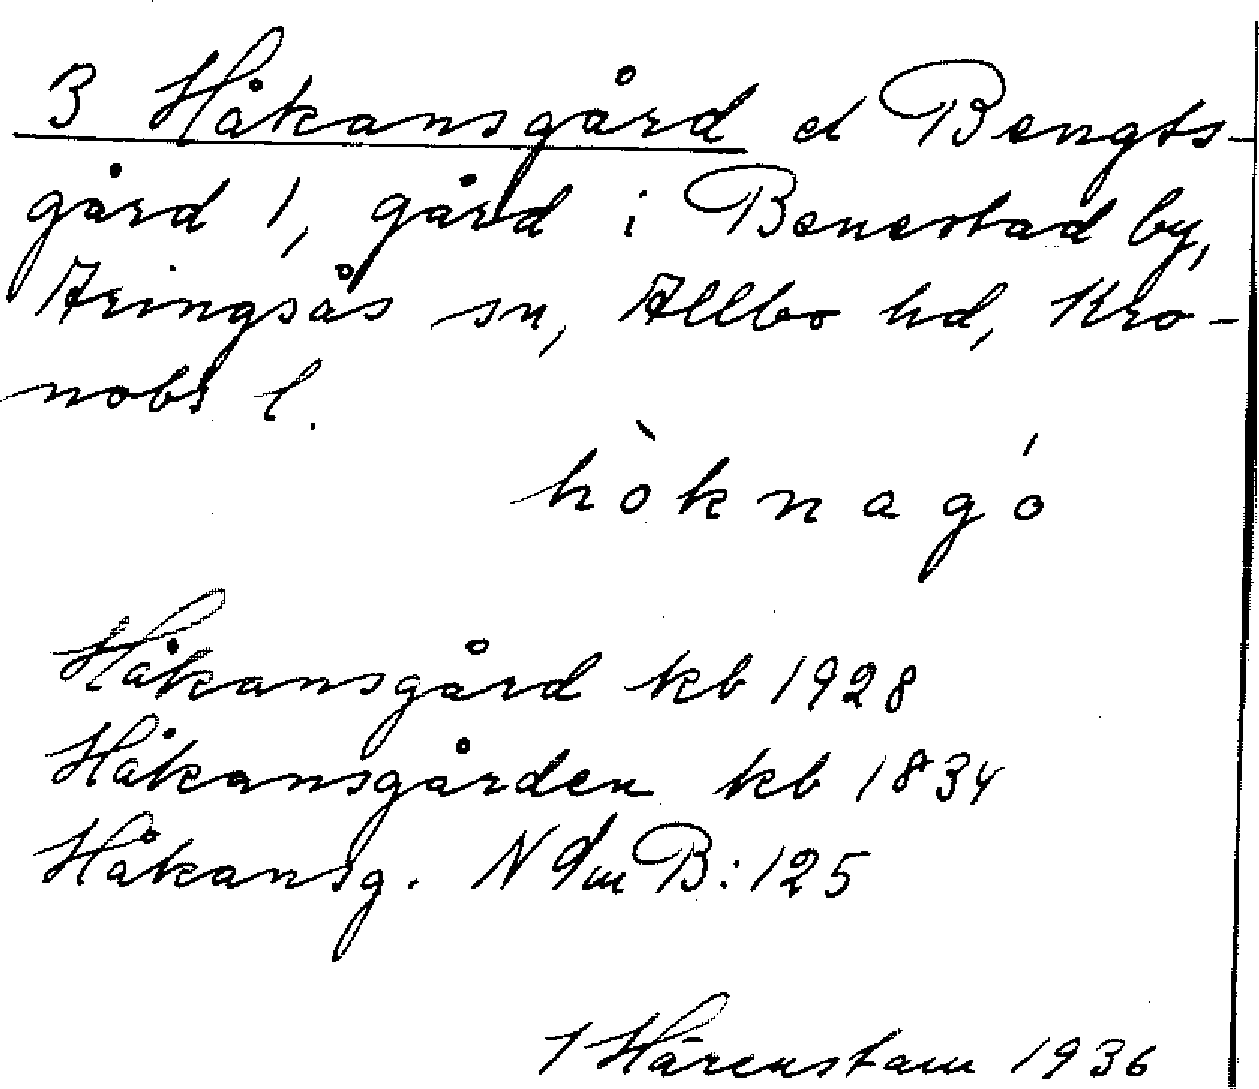 3 Håkansgård el Bengts-
gård 1, gård i Benestad by,
Aringsås sn, Allbo hd, Kro-
nobs l.
hòknagó
Håkansgård kb 1928
Håkansgården kb 1834
Håkansg. N Sm B: 125
Hårenstam 1936